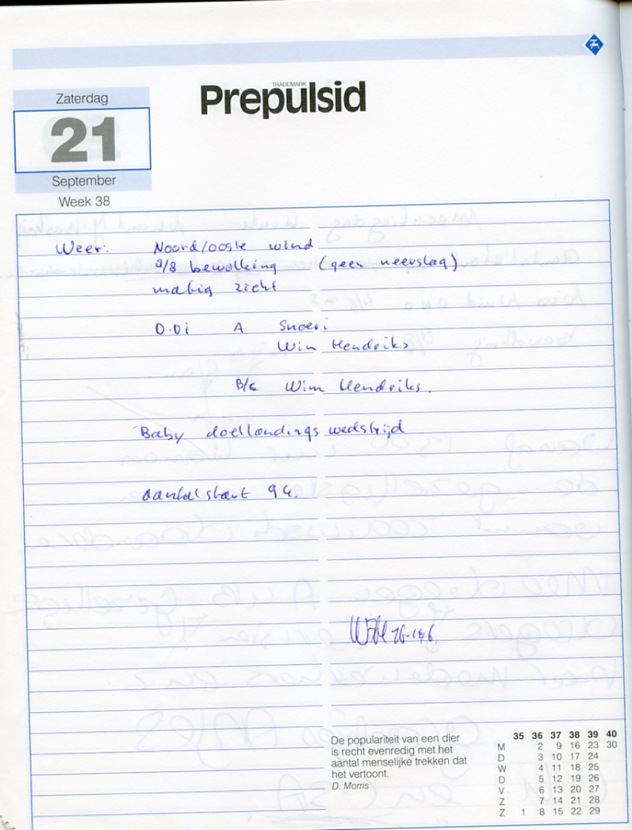 Zaterdag
21
September
Week 38
TRADEMARK
Prepulsid
Weer: Noord/ooste wind
2/8 bewolking (geen neerslag)
matig zicht
D.D.I A Snoeri
Wim Hendriks
B/c Wim Hendriks.
Baby doellandings wedstrijd
aantal start 94.
De populariteit van een dier
is recht evenredig met het
aantal menselijke trekken dat
het vertoont.
D. Morris
35 36 37 38 39 40
M 2 9 16 23 30
D 3 10 17 24
W 4 11 18 25
D 5 12 19 26
V 6 13 20 27
Z 7 14 21 28
Z 1 8 15 22 29